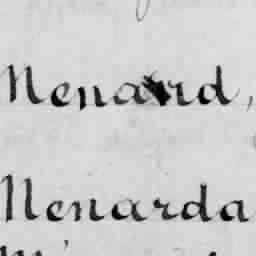 Menard,
Menarda